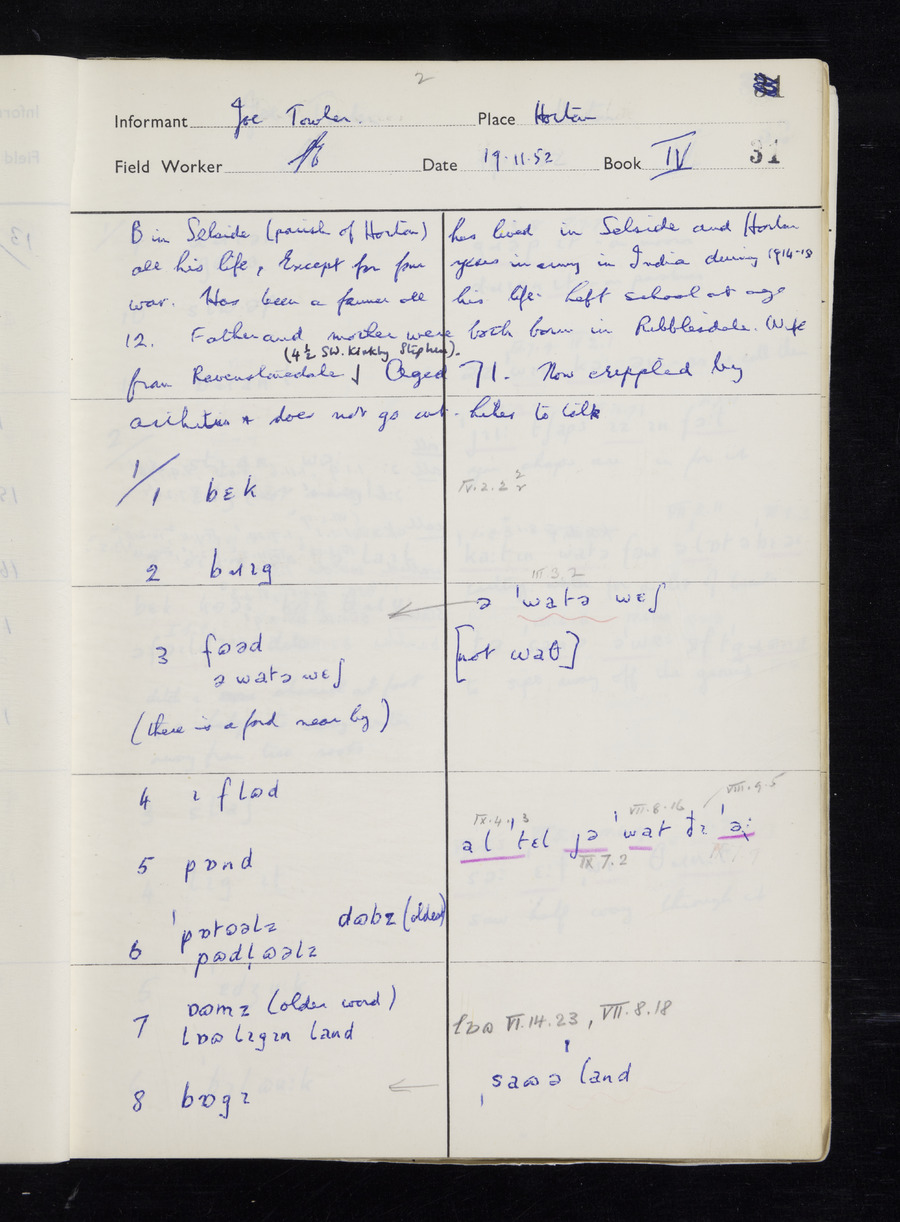 2
Informant Joe Towler. Place Horton
31
Field Worker Date 19.11.52 Book IV
B in Selside (parish of Horton) has lived in Selside and Horton
all his life, Except for four years in army in India during 1914-18
war. Has been a farmer all his life. Left school at age
12. Father and mother were both born in Ribblesdale. (Wife
(4½ SW. Kirkby Stephen).
from Ravenstonedale Aged 71. Now crippled by
arthritis & does not go out. Likes to talk
1/
1 bɛk
IV.2.2
2 bɪɪg
III.3.2
ə ˈwatə wɛʃ
3 fɷəd
[not waθ]
ə watə wɛʃ
(there is a ford near by)
4 ɪ flɷd
VIII.9.5
IX.4.13 VII.8.16
al ˈtɛl jə ˈwat ðɪ ˈə:
IX 7.2
5 pɒnd
6 ˈpɒtɷəlz dɷbz (older)
pɷdl̩ɷəlz
7 ɒɷmz (older word)
lɒɷ lɪgɪn land
lɒɷ VI.14.23, VII.8.18
ˌsaɷə ˈland
8 bɒgɪ